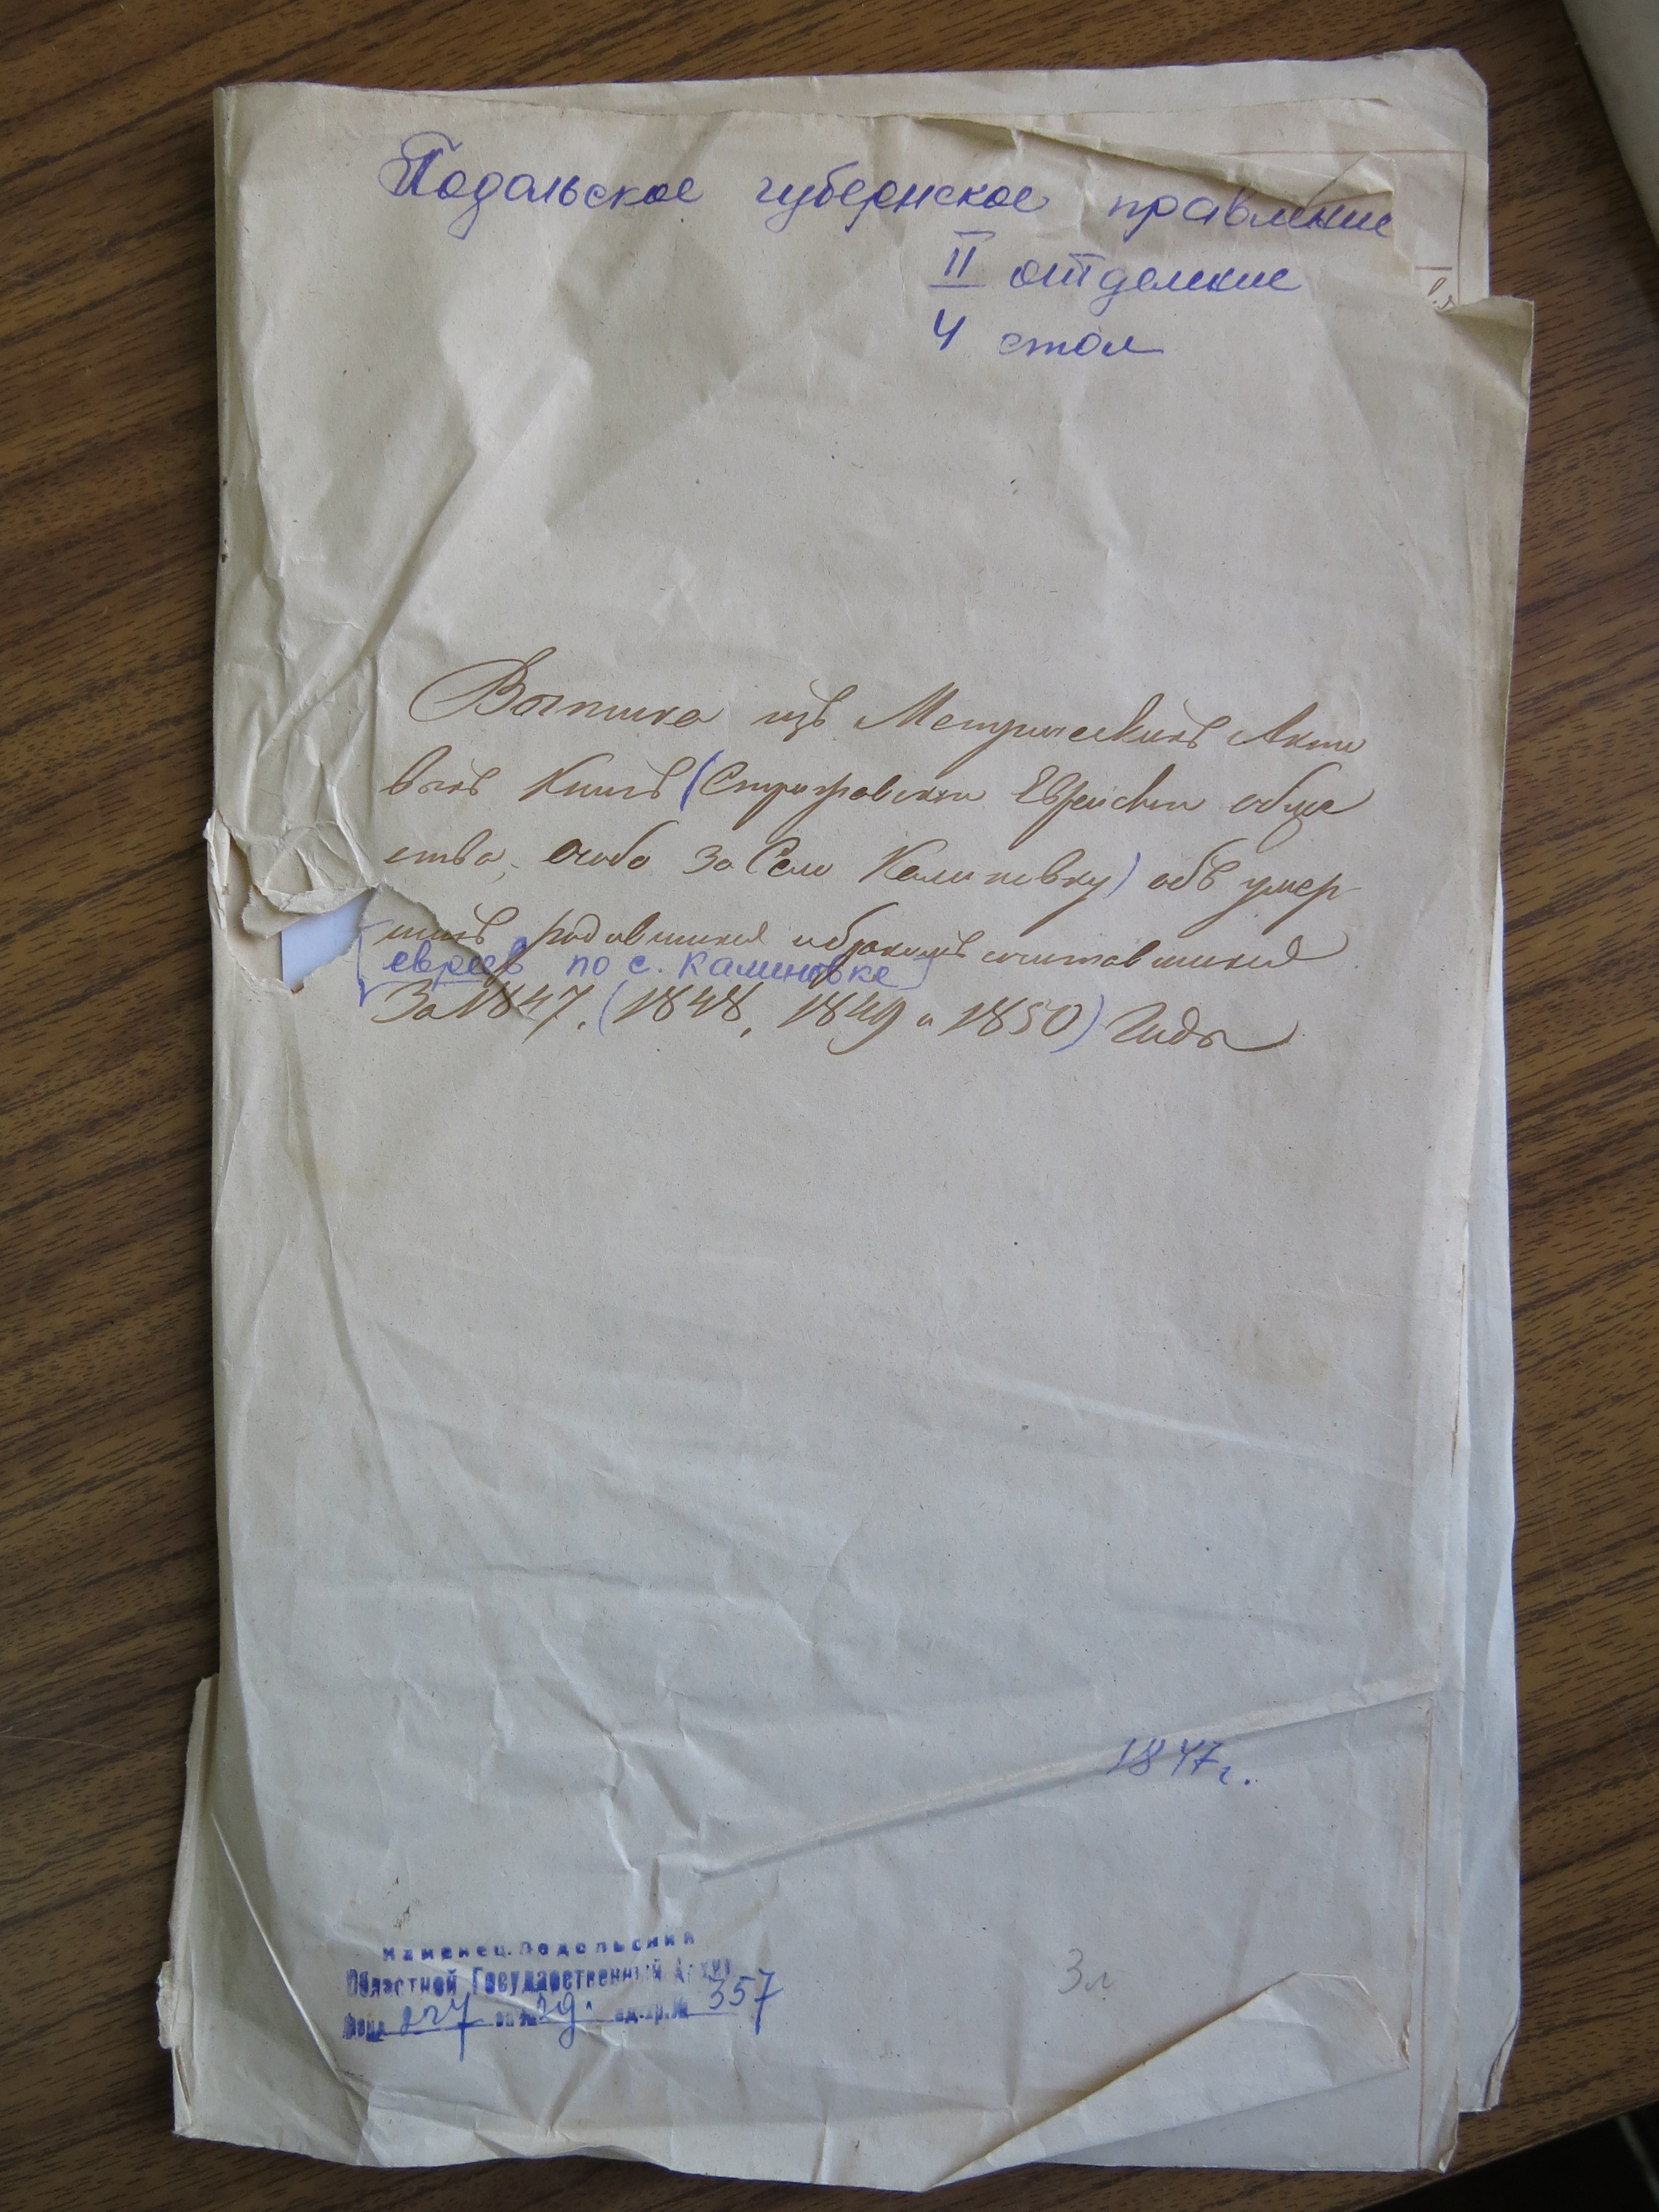 Подольское губернское правление
II отделение
4 стол
Выписка изъ Метрическихъ Акто
выхъ Книгъ (Стрижовском Еврейском обще
ства, особо за Село Калиновку) объ умер
шихъ родившихся и бракомъ сочитавшихся
[евреев по с. Калиновке]
За 1847, (1848, 1849 и 1850) Годы
1847 г.
Каменец-Подольский
Областной Государственный Архив
Фонд 227 оп № 2д. ед.хр.№ 357
3л